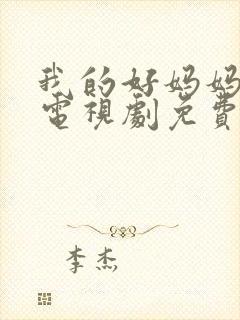 我的好妈妈
電視劇免費
李杰